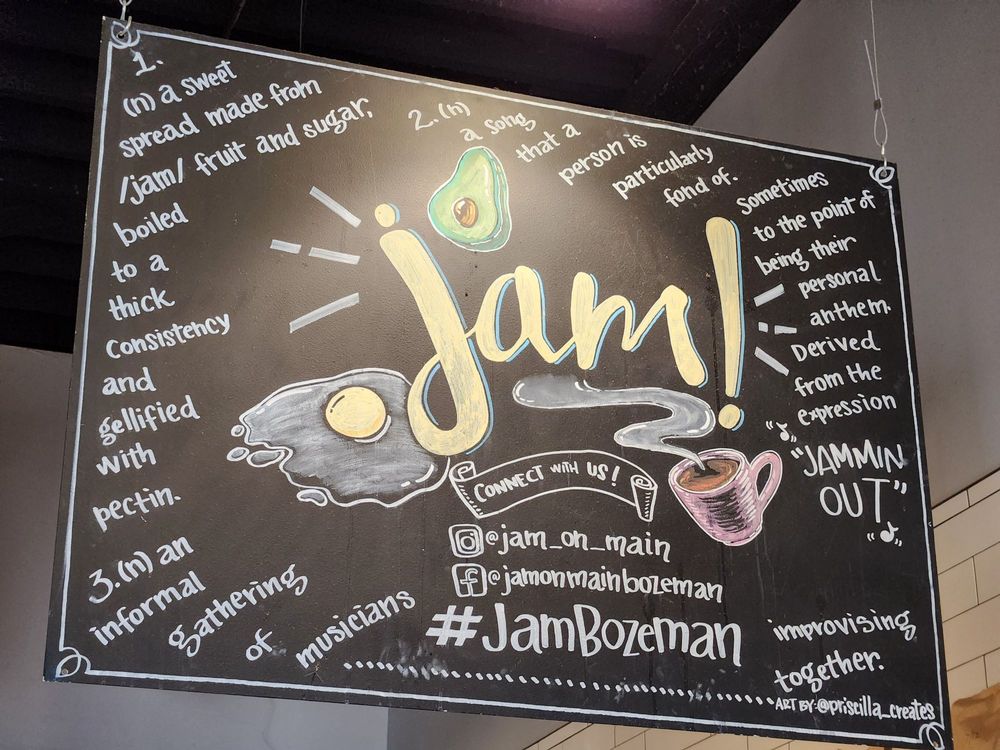 1.
(n) a sweet
spread made from
/jam/ fruit and sugar,
boiled
to a
thick
consistency
and
gellified
with
pectin.
2. (n)
a song
that a
person is
particularly
fond of.
Sometimes
to the point of
being their
personal
anthem.
Derived
from the
expression
"JAMMIN
OUT"
jam!
CONNECT WITH US!
@jam_on_main
@jamonmainbozeman
#JamBozeman
3.(n) an
informal
gathering
of
musicians
improvising
together.
ART BY: @priscilla_creates